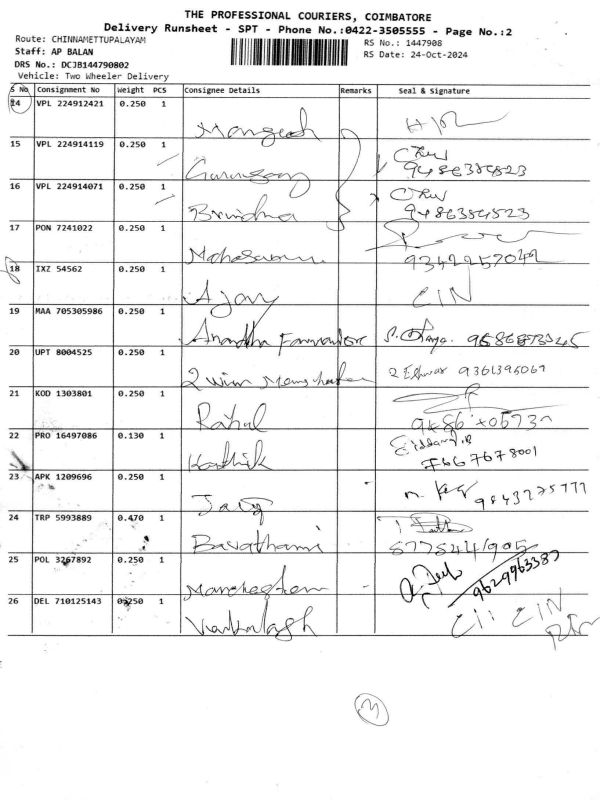 THE PROFESSIONAL COURIERS, COIMBATORE
Delivery Runsheet - SPT - Phone No.:0422-3505555 - Page No.:2
Route: CHINNAMETTUPALAYAM
RS No.: 1447908
Staff: AP BALAN
RS Date: 24-Oct-2024
DRS No.: DCJB144790802
Vehicle: Two Wheeler Delivery
S No Consignment No Weight PCS Consignee Details Remarks Seal & Signature
14 VPL 224912421 0.250 1 Mangesh
15 VPL 224914119 0.250 1 9486384523
16 VPL 224914071 0.250 1 Brindha 9486384523
17 PON 7241022 0.250 1 9342257042
18 IXZ 54562 0.250 1 Ajay
19 MAA 705305986 0.250 1 Anandha
20 UPT 8004525 0.250 1 9361395067
21 KOD 1303801 0.250 1 Rahul
22 PRO 16497086 0.130 1 Karthick 7667678001
23 APK 1209696 0.250 1
24 TRP 5993889 0.470 1
25 POL 3267892 0.250 1 Manchester 9629963387
26 DEL 710125143 0.250 1
3